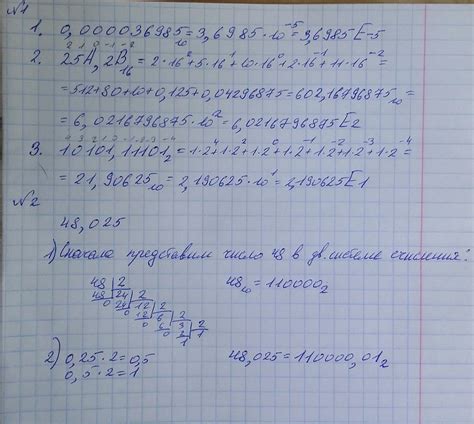 №1
1. 0,000036985₁₀ = 3,6985·10⁻⁵ = 3,6985E-5
2 1 0 -1 -2
2. 25A,2B₁₆ = 2·16²+5·16¹+10·16⁰+2·16⁻¹+11·16⁻² =
= 512+80+10+0,125+0,04296875 = 602,16796875₁₀ =
= 6,0216796875·10² = 6,0216796875E2
4 3 2 1 0 -1 -2 -3 -4
3. 10101,11101₂ = 1·2⁴+1·2²+1·2⁰+1·2⁻¹+1·2⁻²+1·2⁻³+1·2⁻⁴ =
= 21,90625₁₀ = 2,190625·10¹ = 2,190625E1
№2
48,025
1) Сначала представим число 48 в дв. системе счисления:
48 2
48 24 2
0 24 12 2
0 12 6 2
0 6 3 2
0 2 1
1
48₁₀ = 110000₂
2) 0,25·2=0,5
0,5·2=1
48,025 = 110000,01₂